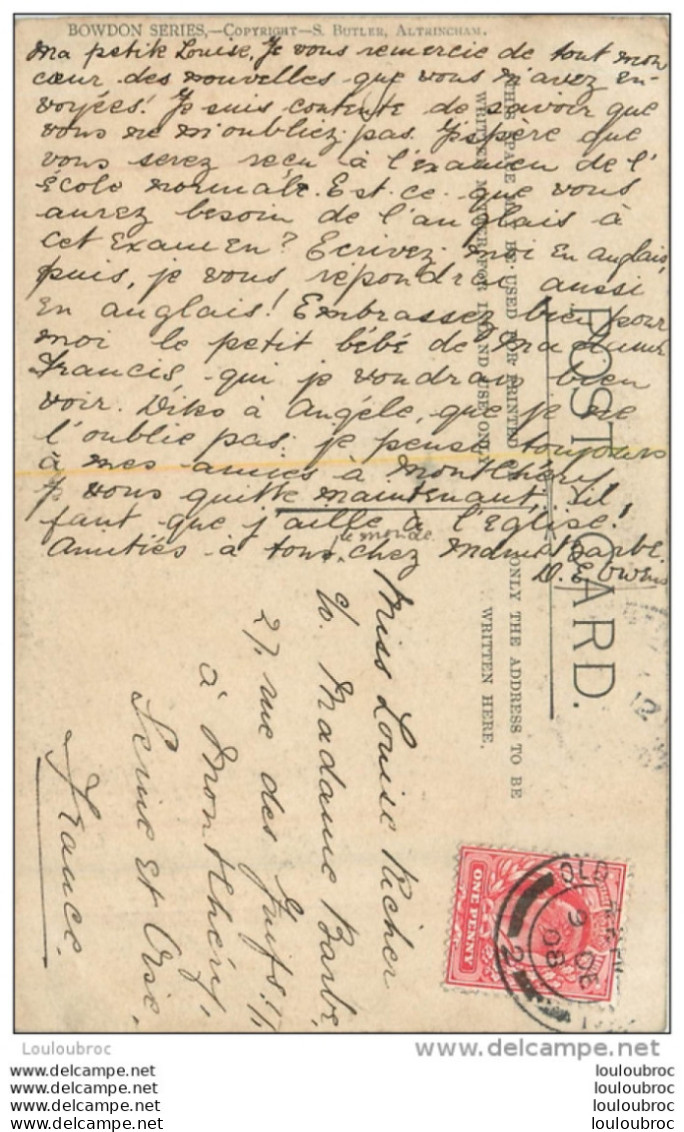 BOWDON SERIES,—COPYRIGHT—S. BUTLER, ALTRINCHAM.
Ma petite Louise, Je vous remercie de tout mon
cœur des nouvelles que vous m'avez en-
voyées! Je suis contente de savoir que
vous ne m'oubliez pas. J'espère que
vous serez reçu à l'examen de l'
école normale. Est-ce que vous
aurez besoin de l'anglais à
cet examen? Ecrivez-moi en anglais,
puis, je vous répondrai aussi
en anglais! Embrassez bien pour
moi le petit bébé de Madame
Francis, qui je voudrais bien
voir. Dites à Angèle, que je ne
l'oublie pas: je pense toujours
à mes amies à Montlhéry!
Je vous quitte maintenant, il
faut que j'aille à l'Eglise!
Amitiés à tous chez Mame Barbe.
le monde
D. E. Owens
POST CARD.
THIS SPACE MAY BE USED FOR PRINTED
WRITTEN MATTER FOR INLAND USE ONLY
ONLY THE ADDRESS TO BE
WRITTEN HERE.
Miss Louise Richer
c/o. Madame Barbe,
27, rue des Juifs!!,
à Montlhéry,
Seine et Oise,
France.
ONE PENNY
OLD
9 DE
08
2
12
Louloubroc
www.delcampe.net
louloubroc
louloubroc
louloubroc
louloubroc
louloubroc
louloubroc
louloubroc
louloubroc